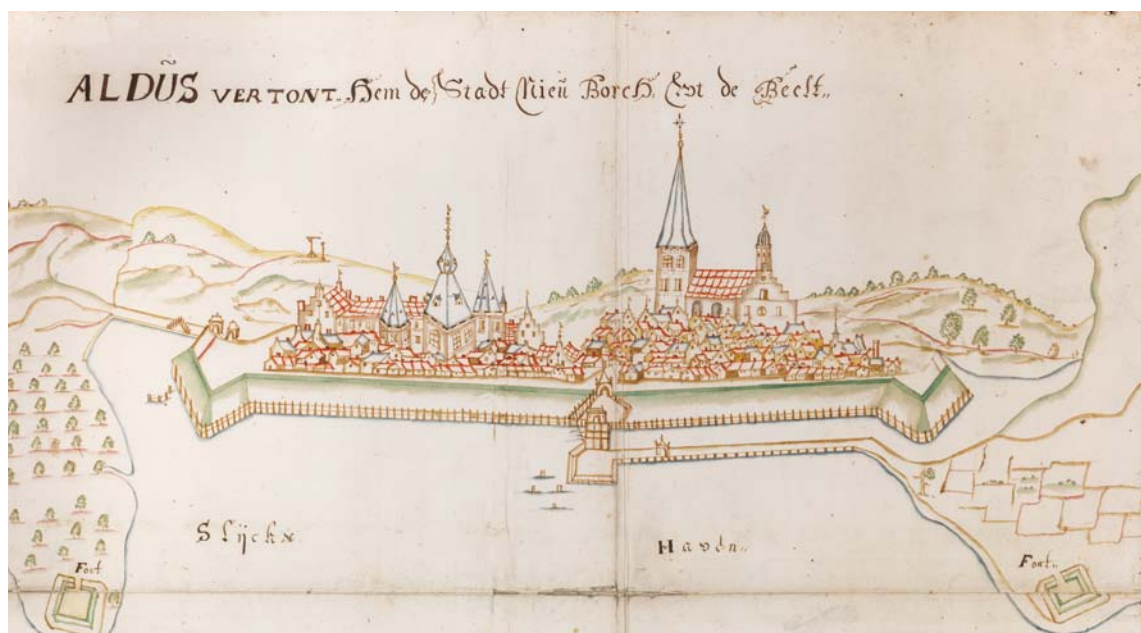 ALDŨS VERTONT Hem de Stadt Nieũ Borch Uyt de Beelt
Slijcke Haven
Fort Fort